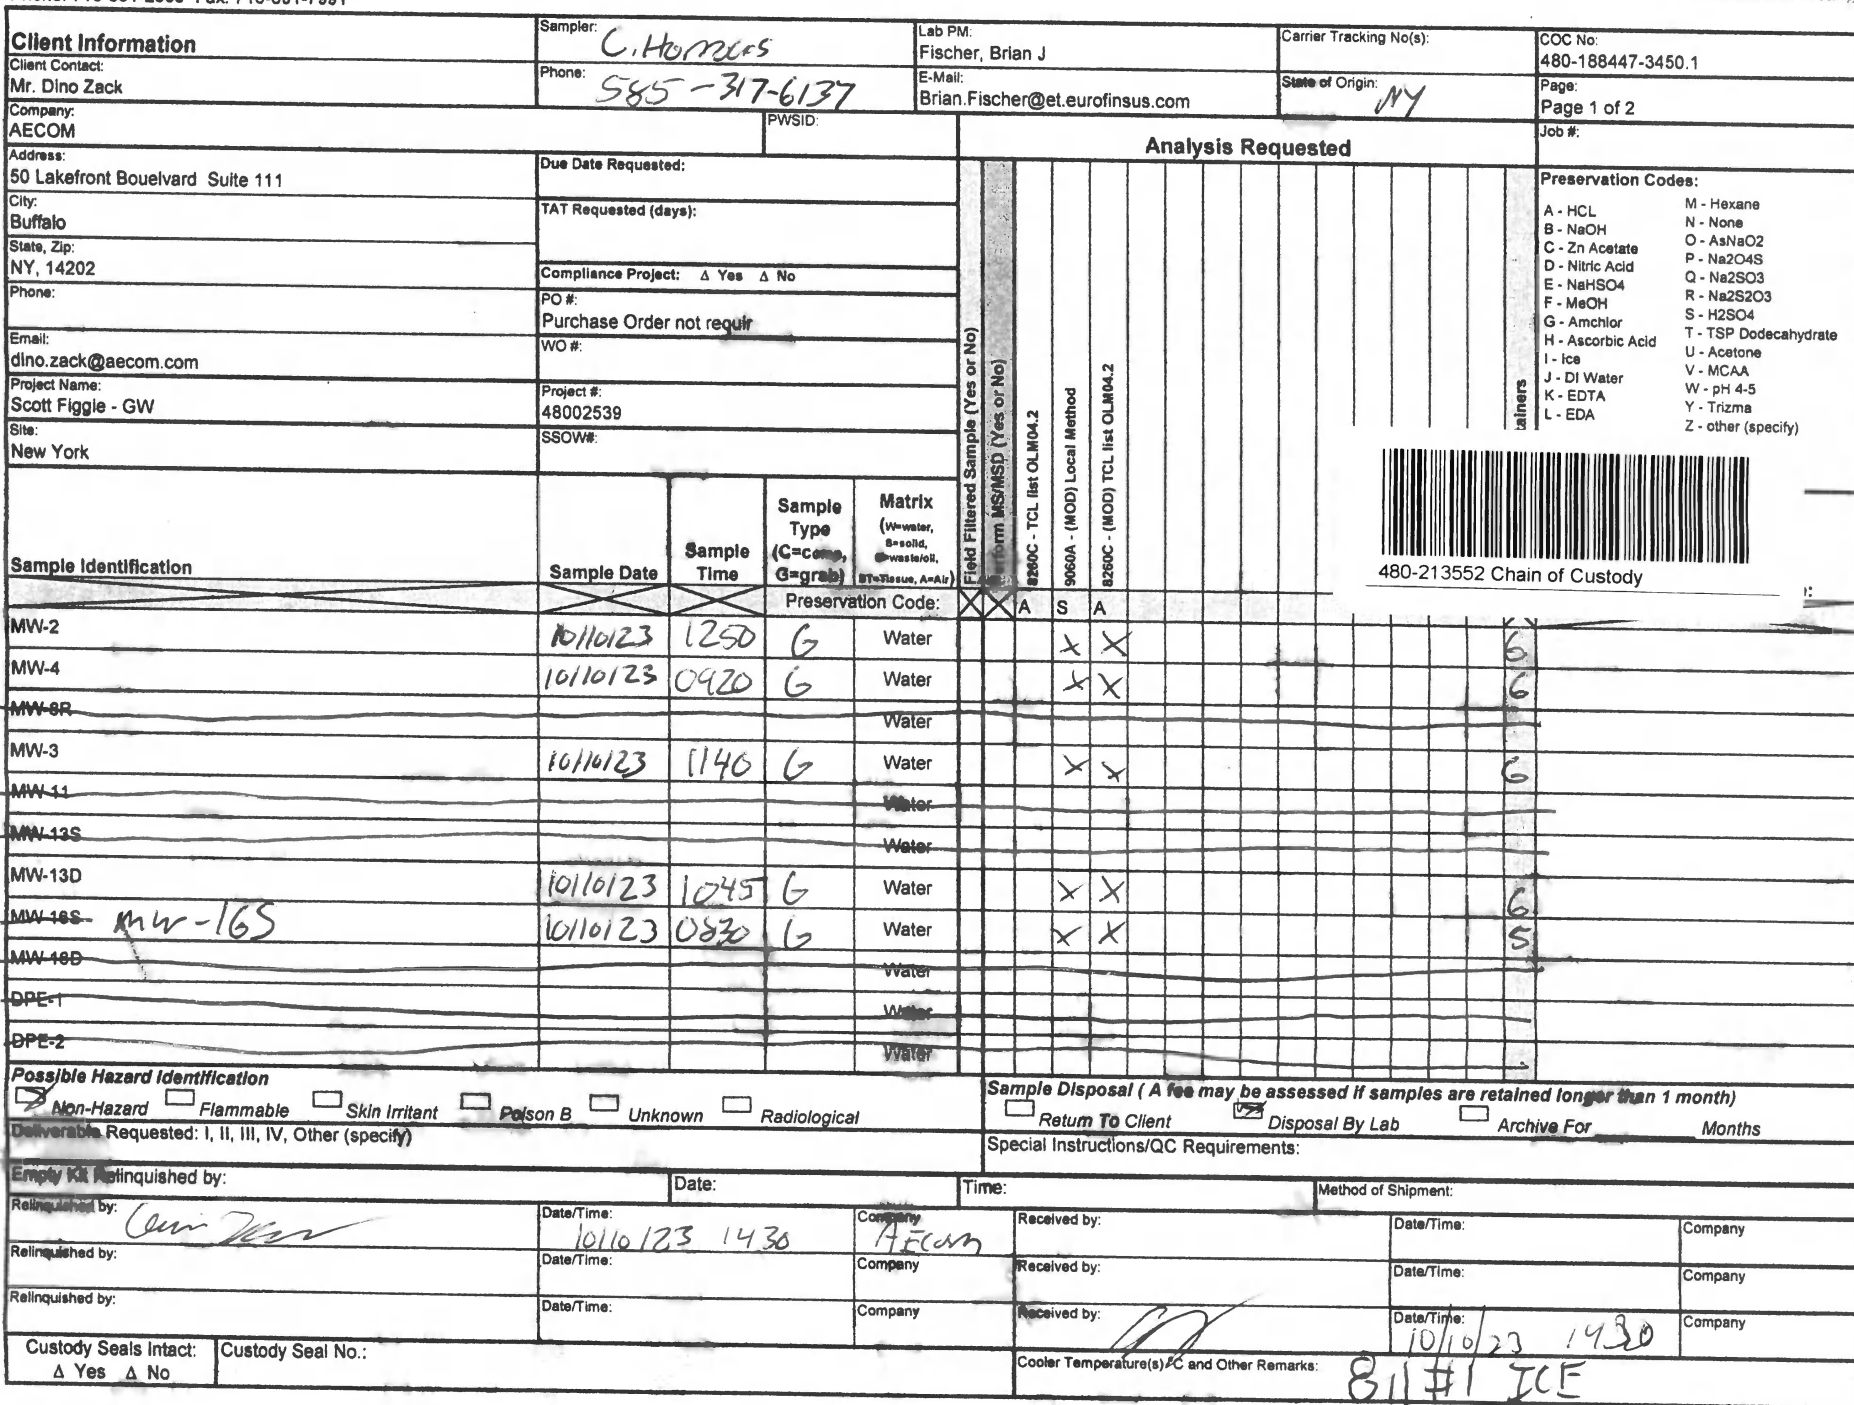 Client Information
Sampler: C. Homans
Lab PM: Fischer, Brian J
Carrier Tracking No(s):
COC No: 480-188447-3450.1
Client Contact: Mr. Dino Zack
Phone: 585-317-6137
E-Mail: Brian.Fischer@et.eurofinsus.com
State of Origin: NY
Page: Page 1 of 2
Company: AECOM
PWSID:
Analysis Requested
Job #:
Address: 50 Lakefront Bouelvard Suite 111
Due Date Requested:
City: Buffalo
TAT Requested (days):
State, Zip: NY, 14202
Compliance Project: Δ Yes Δ No
Phone:
PO #: Purchase Order not requir
Email: dino.zack@aecom.com
WO #:
Project Name: Scott Figgie - GW
Project #: 48002539
Site: New York
SSOW#:
Preservation Codes:
A - HCL
B - NaOH
C - Zn Acetate
D - Nitric Acid
E - NaHSO4
F - MeOH
G - Amchlor
H - Ascorbic Acid
I - Ice
J - DI Water
K - EDTA
L - EDA
M - Hexane
N - None
O - AsNaO2
P - Na2O4S
Q - Na2SO3
R - Na2S2O3
S - H2SO4
T - TSP Dodecahydrate
U - Acetone
V - MCAA
W - pH 4-5
Y - Trizma
Z - other (specify)
Field Filtered Sample (Yes or No)
Perform MS/MSD (Yes or No)
8260C - TCL list OLM04.2
9060A - (MOD) Local Method
8260C - (MOD) TCL list OLM04.2
tainers
480-213552 Chain of Custody
Sample Identification
Sample Date
Sample Time
Sample Type (C=comp, G=grab)
Matrix (W=water, S=solid, O=waste/oil, BT=Tissue, A=Air)
Preservation Code: A S A
MW-2 10/10/23 1250 G Water X X 6
MW-4 10/10/23 0920 G Water X X 6
MW-8R Water
MW-3 10/10/23 1140 G Water X X 6
MW-11 Water
MW-13S Water
MW-13D 10/10/23 1045 G Water X X 6
MW-16S MW-16S 10/10/23 0830 G Water X X 5
MW-16D Water
DPE-1 Water
DPE-2 Water
Possible Hazard Identification
Non-Hazard Flammable Skin Irritant Poison B Unknown Radiological
Sample Disposal ( A fee may be assessed if samples are retained longer than 1 month)
Return To Client Disposal By Lab Archive For Months
Deliverable Requested: I, II, III, IV, Other (specify)
Special Instructions/QC Requirements:
Empty Kit Relinquished by: Date: Time: Method of Shipment:
Relinquished by: Date/Time: 10/10/23 1430 Company AECOM Received by: Date/Time: Company
Relinquished by: Date/Time: Company Received by: Date/Time: Company
Relinquished by: Date/Time: Company Received by: Date/Time: 10/10/23 1430 Company
Custody Seals Intact: Δ Yes Δ No
Custody Seal No.:
Cooler Temperature(s) °C and Other Remarks: #1 ICE